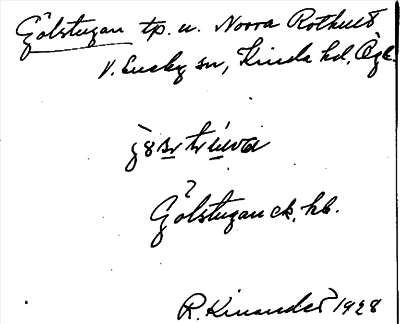 Gölstugan tp. u. Norra Rothult
V. Eneby sn, Kinda hd, Ögl.
Gölstugan ek. kb.
R. Kinander 1928